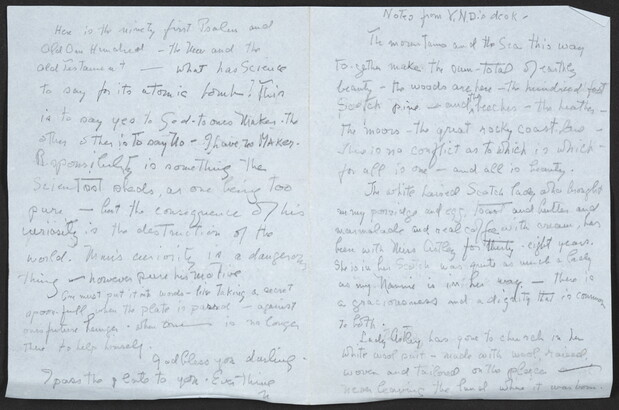 Here is the ninety first Psalm and
Old One Hundred - the New and the
Old Testament — what has Science
to say for its atomic bomb? This
is to say yes to God - to ones Maker - the
other is to say No - I have no Maker.
Responsibility is something the
Scientist sheds, as one being too
pure — but the consequence of his
curiosity is the destruction of the
world. Man's curiosity is a dangerous
thing — however pure his motive
One must put it into words - like taking a secret
spoon-full when the plate is passed - against
one's future hunger - when one is no longer
there to help himself.
God bless you darling.
I pass the plate to you. Everything
Notes from desk -
The mountains and the Sea this way
together make the sum-total of earthly
beauty - the woods are here - the hundred foot
Scotch pine - and the beaches - the heather -
the moors - the great rocky coast line -
There is no conflict as to which is which -
for all is one - and all is beauty.
The white haired Scotch lady who brought
in my porridge and egg, toast and butter and
marmalade and real coffee with cream, has
been with Miss Astley for thirty-eight years.
She is in her Scotch way quite as much a lady
as my Nannie is in her way - there is
a graciousness and a dignity that is common
to both.
Lady Astley has gone to church in her
white wool suit - made with wool, raised,
woven and tailored on the place —
never leaving the land where it was born.